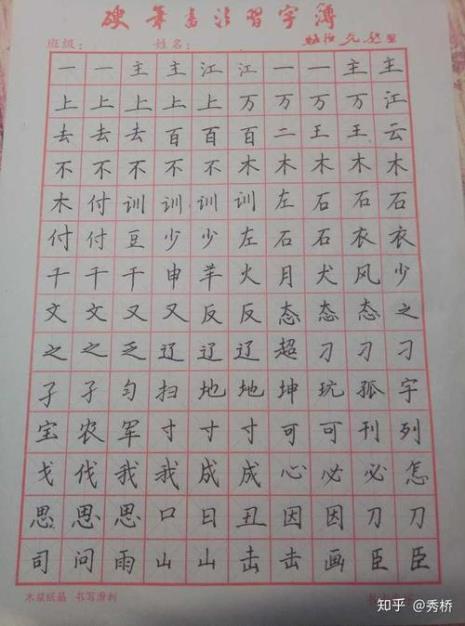 硬笔书法习字簿
班级： 姓名：
一 一 主 主 江 江 一 一 主 主
上 上 上 上 上 万 万 万 万 江
去 去 去 百 百 百 二 王 王 云
不 不 不 不 不 木 木 木 木 木
木 付 训 训 训 训 左 石 石 石
付 付 豆 少 少 左 石 石 衣 衣
干 干 干 申 羊 火 月 犬 风 少
文 文 又 又 反 反 态 态 态 之
之 之 乏 辽 辽 辽 超 刁 刁 刁
孑 孑 匀 扫 地 地 坤 玩 孤 字
宝 农 军 寸 寸 寸 可 可 刊 列
戈 伐 我 我 成 成 心 必 必 怎
思 思 思 口 日 丑 因 因 刀 刀
司 问 雨 山 山 击 击 画 臣 臣
木浆纸品 书写滑利
知乎 @秀桥